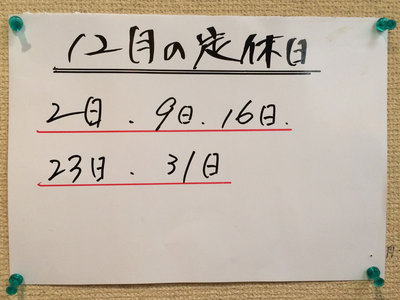 12月の定休日
2日．9日．16日．
23日．31日